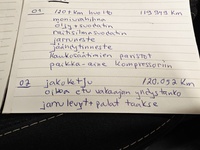 01 120 tkm huolto 119 999 Km
moniurahihna
öljy + suodatin
raitisilmasuodatin
jarruneste
jäähdytinneste
kaukosäätimien paristot
paikka-aine kompressoriin
02 jakoketju 120.092 Km
oikea etu vakaajan yhdystanko
jarrulevyt + palat taakse